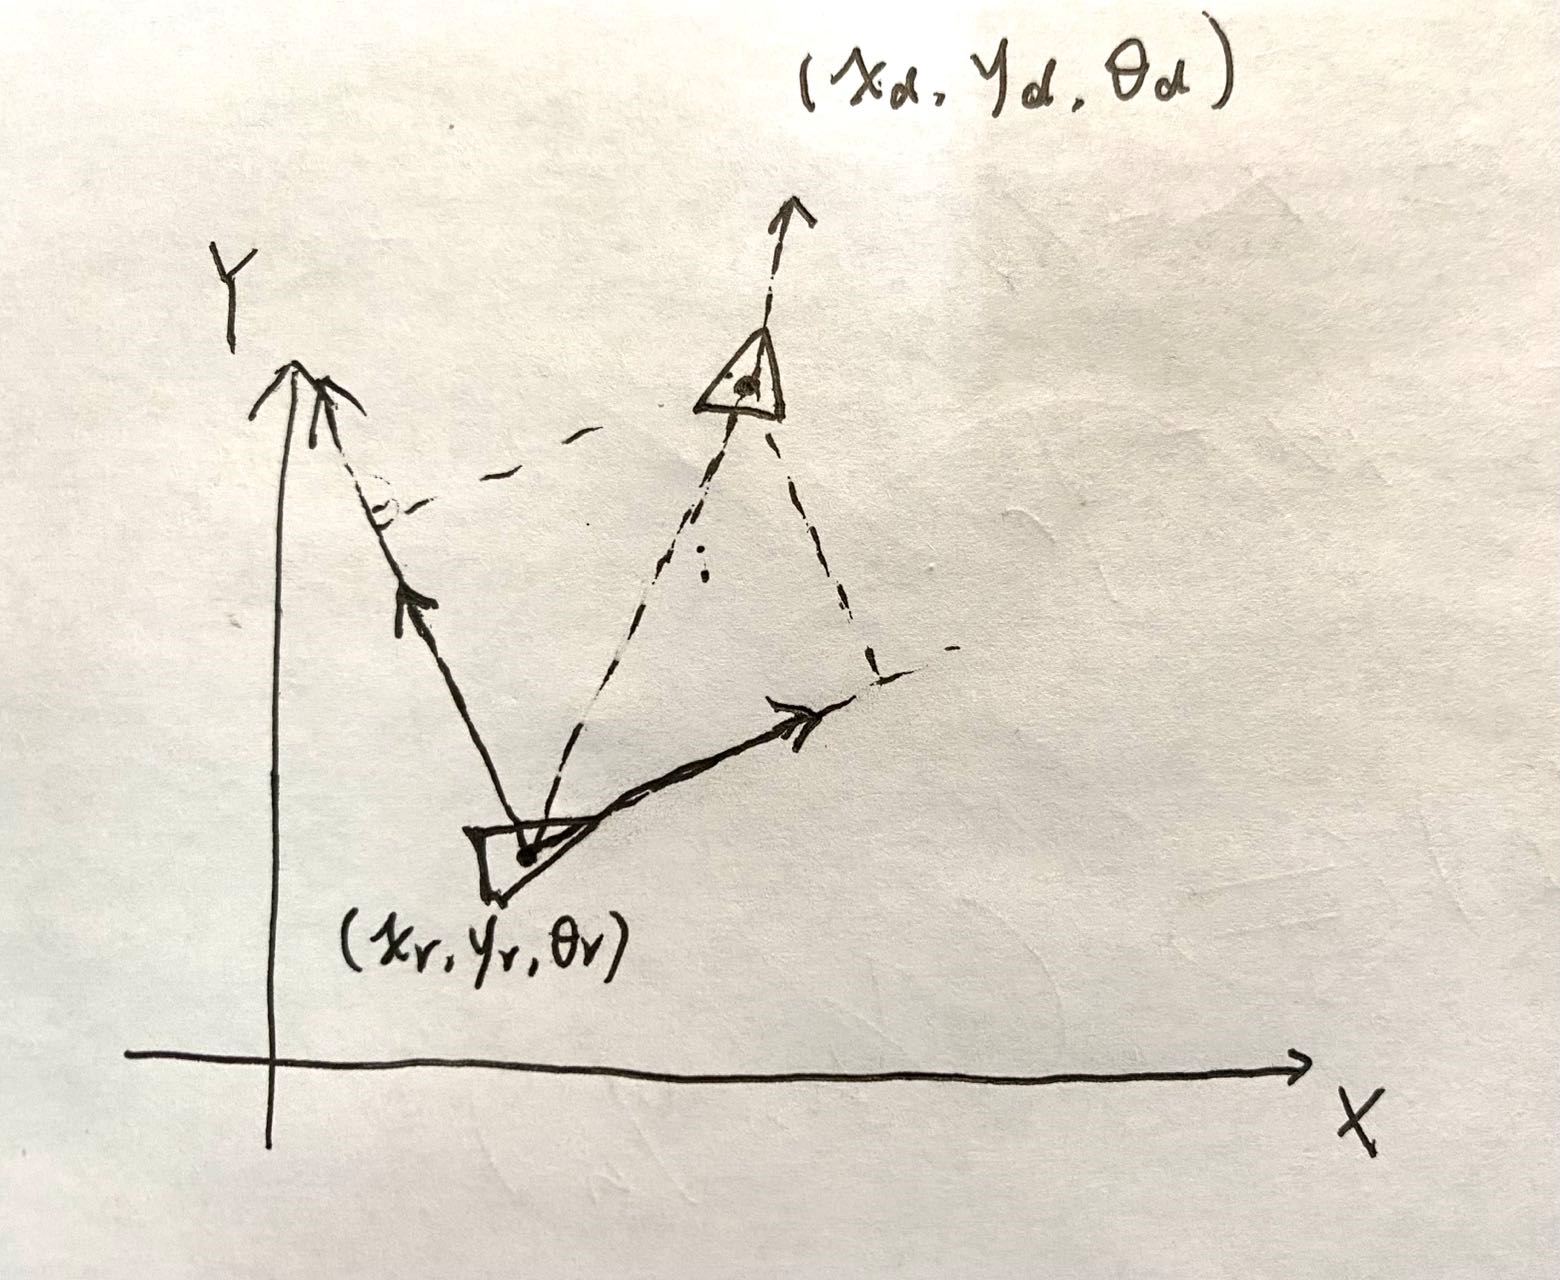 (xd, yd, θd)
Y
(xr, yr, θr)
X